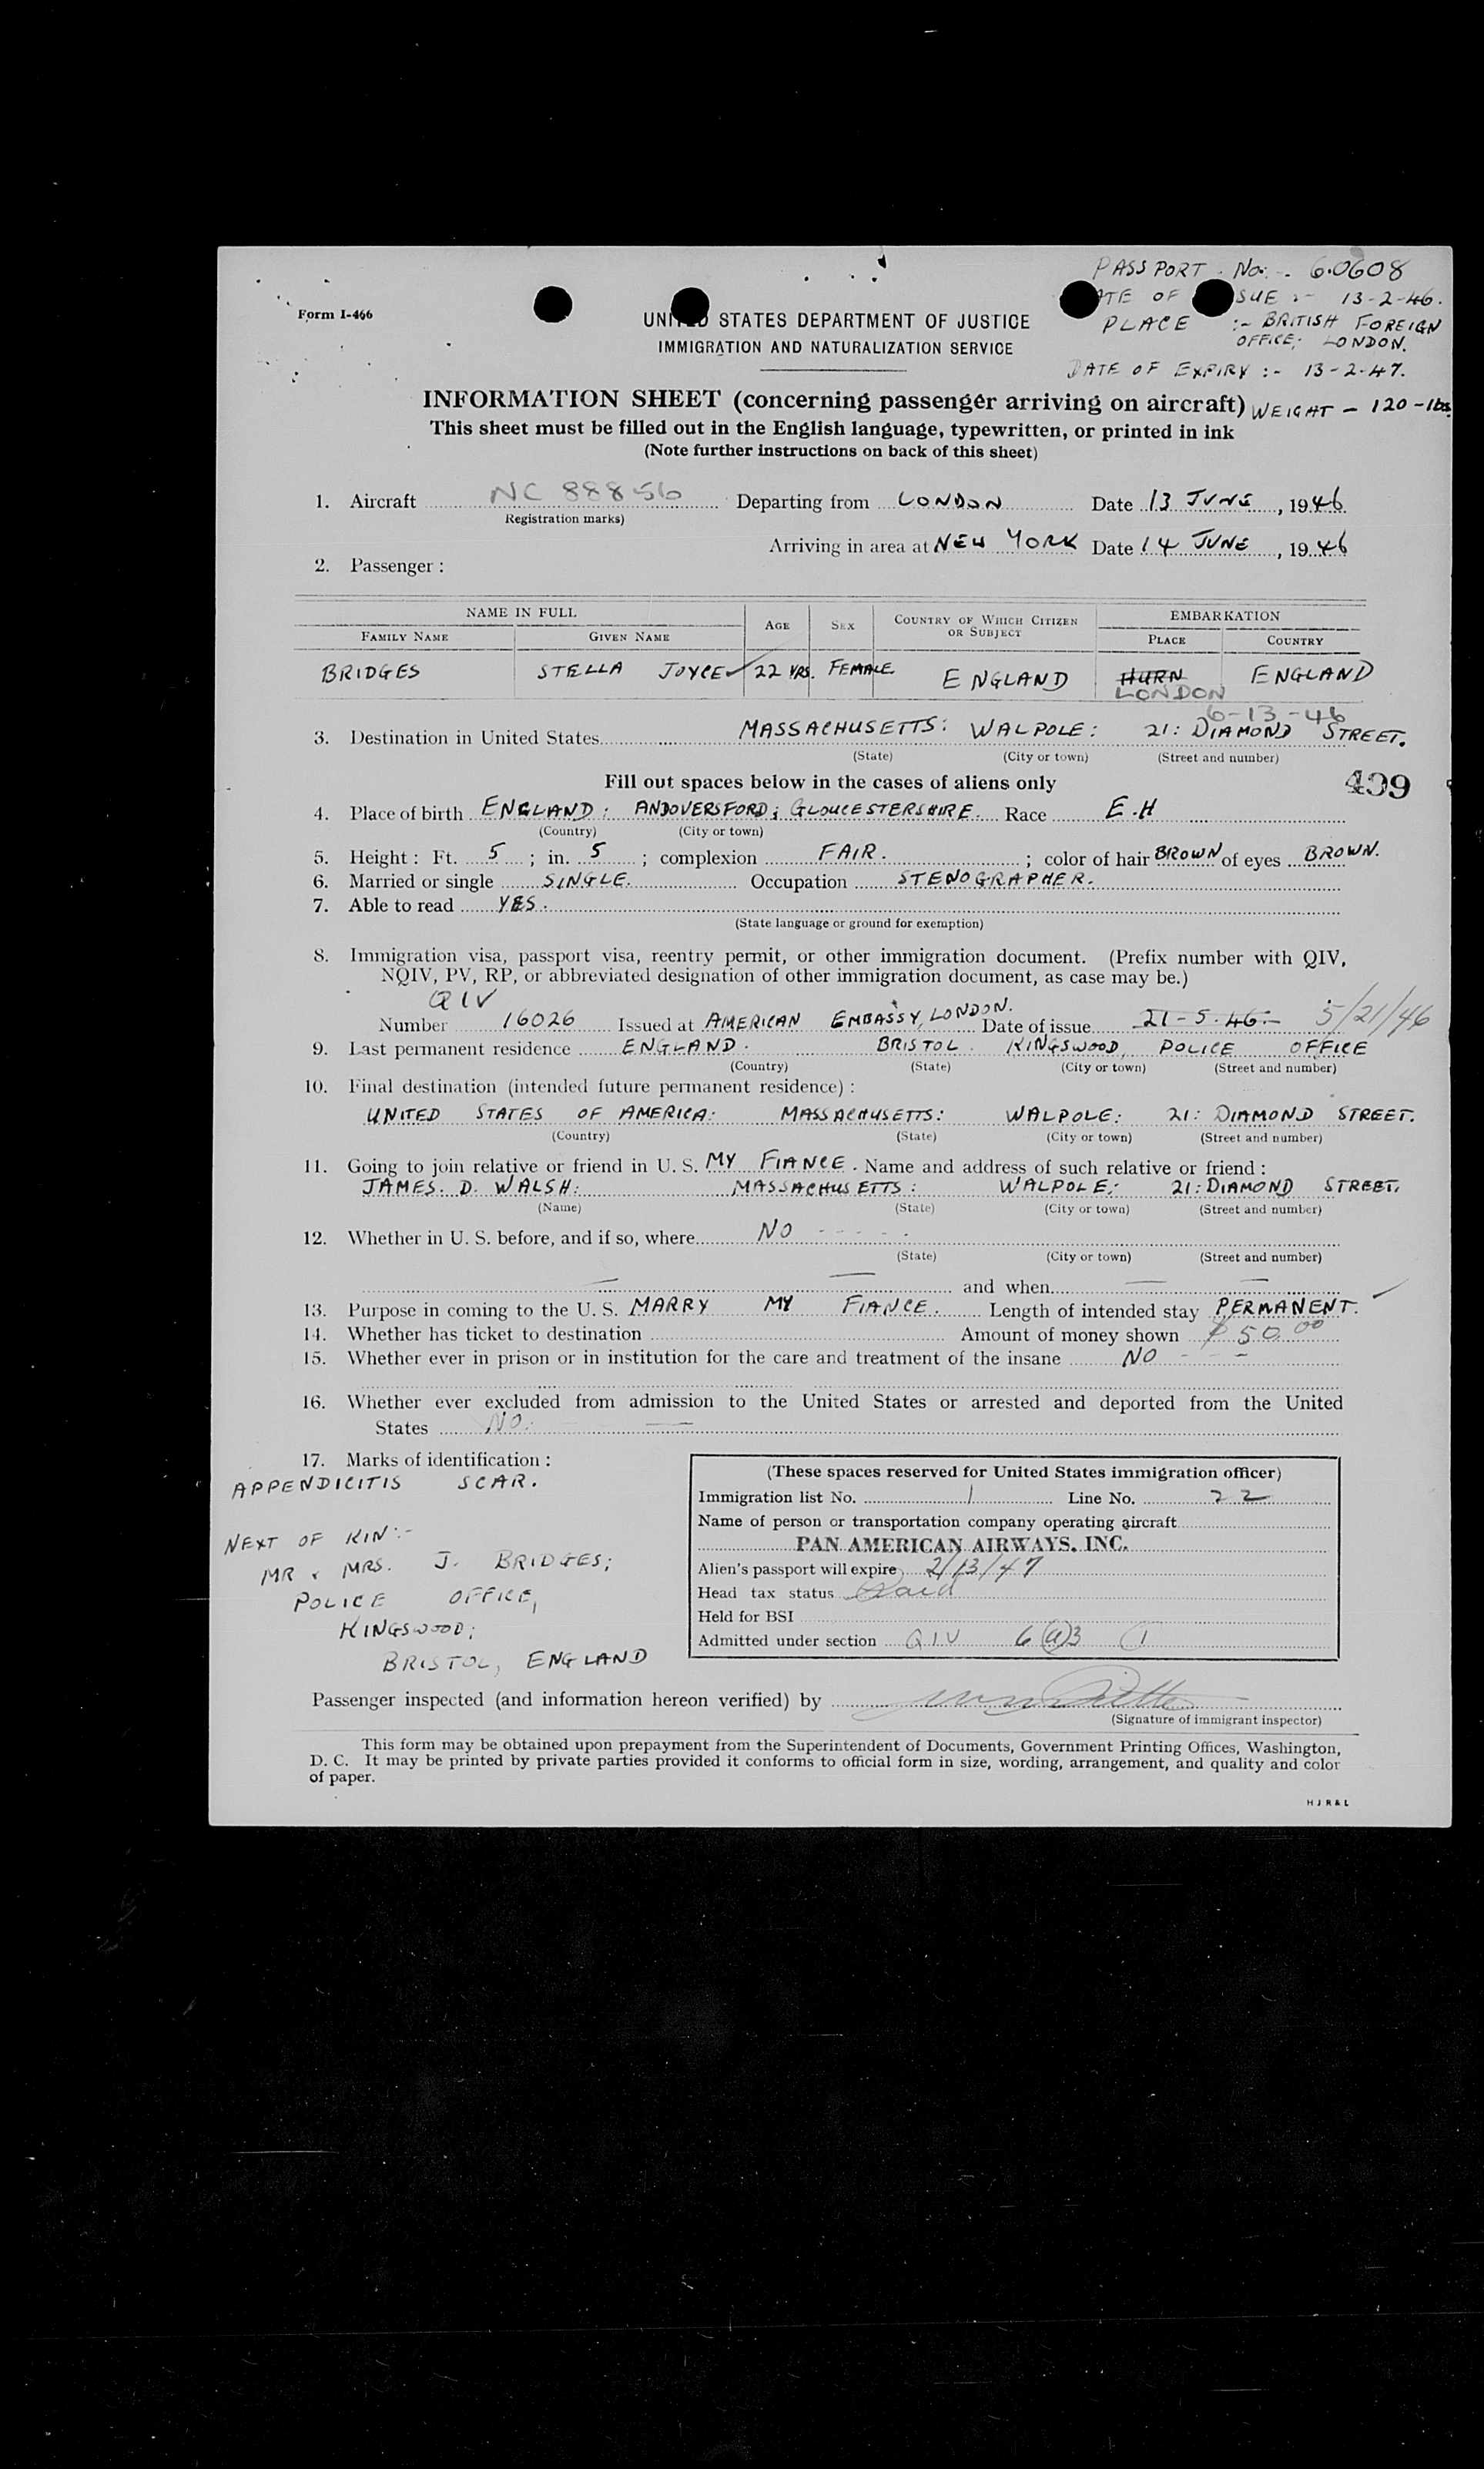 PASSPORT. No:- 60608
Form I-466
ATE OF SUE :- 13-2-46.
UNITED STATES DEPARTMENT OF JUSTICE
PLACE :- BRITISH FOREIGN
OFFICE; LONDON.
IMMIGRATION AND NATURALIZATION SERVICE
DATE OF EXPIRY :- 13-2-47.
INFORMATION SHEET (concerning passenger arriving on aircraft) WEIGHT - 120-lbs.
This sheet must be filled out in the English language, typewritten, or printed in ink
(Note further instructions on back of this sheet)
1. Aircraft NC 88856 Departing from LONDON Date 13 JUNE, 1946
Registration marks)
Arriving in area at NEW YORK Date 14 JUNE, 1946
2. Passenger :
NAME IN FULL AGE SEX COUNTRY OF WHICH CITIZEN OR SUBJECT EMBARKATION
FAMILY NAME GIVEN NAME PLACE COUNTRY
BRIDGES STELLA JOYCE 22 YRS. FEMALE ENGLAND HURN ENGLAND
LONDON
6-13-46
3. Destination in United States MASSACHUSETTS: WALPOLE: 21: DIAMOND STREET.
(State) (City or town) (Street and number)
Fill out spaces below in the cases of aliens only 409
4. Place of birth ENGLAND; ANDOVERSFORD; GLOUCESTERSHIRE. Race E.H
(Country) (City or town)
5. Height : Ft. 5 ; in. 5 ; complexion FAIR. ; color of hair BROWN of eyes BROWN.
6. Married or single SINGLE. Occupation STENOGRAPHER.
7. Able to read YES.
(State language or ground for exemption)
8. Immigration visa, passport visa, reentry permit, or other immigration document. (Prefix number with QIV,
NQIV, PV, RP, or abbreviated designation of other immigration document, as case may be.)
QIV
Number 16026 Issued at AMERICAN EMBASSY, LONDON. Date of issue 21-5-46- 5/21/46
9. Last permanent residence ENGLAND. BRISTOL. KINGSWOOD, POLICE OFFICE
(Country) (State) (City or town) (Street and number)
10. Final destination (intended future permanent residence) :
UNITED STATES OF AMERICA: MASSACHUSETTS: WALPOLE: 21: DIAMOND STREET.
(Country) (State) (City or town) (Street and number)
11. Going to join relative or friend in U. S. MY FIANCE. Name and address of such relative or friend :
JAMES. D. WALSH: MASSACHUSETTS: WALPOLE; 21: DIAMOND STREET.
(Name) (State) (City or town) (Street and number)
12. Whether in U. S. before, and if so, where NO - - - -
(State) (City or town) (Street and number)
and when
13. Purpose in coming to the U. S. MARRY MY FIANCE. Length of intended stay PERMANENT.
14. Whether has ticket to destination Amount of money shown $50.00
15. Whether ever in prison or in institution for the care and treatment of the insane NO - - -
16. Whether ever excluded from admission to the United States or arrested and deported from the United
States NO.
17. Marks of identification :
APPENDICITIS SCAR.
NEXT OF KIN :-
MR & MRS. J. BRIDGES;
POLICE OFFICE,
KINGSWOOD;
BRISTOL, ENGLAND
(These spaces reserved for United States immigration officer)
Immigration list No. 1 Line No. 22
Name of person or transportation company operating aircraft
PAN AMERICAN AIRWAYS, INC.
Alien's passport will expire 2/13/47
Head tax status Paid
Held for BSI
Admitted under section QIV 6(a)3 1
Passenger inspected (and information hereon verified) by
(Signature of immigrant inspector)
This form may be obtained upon prepayment from the Superintendent of Documents, Government Printing Offices, Washington,
D. C. It may be printed by private parties provided it conforms to official form in size, wording, arrangement, and quality and color
of paper.
H J R & L